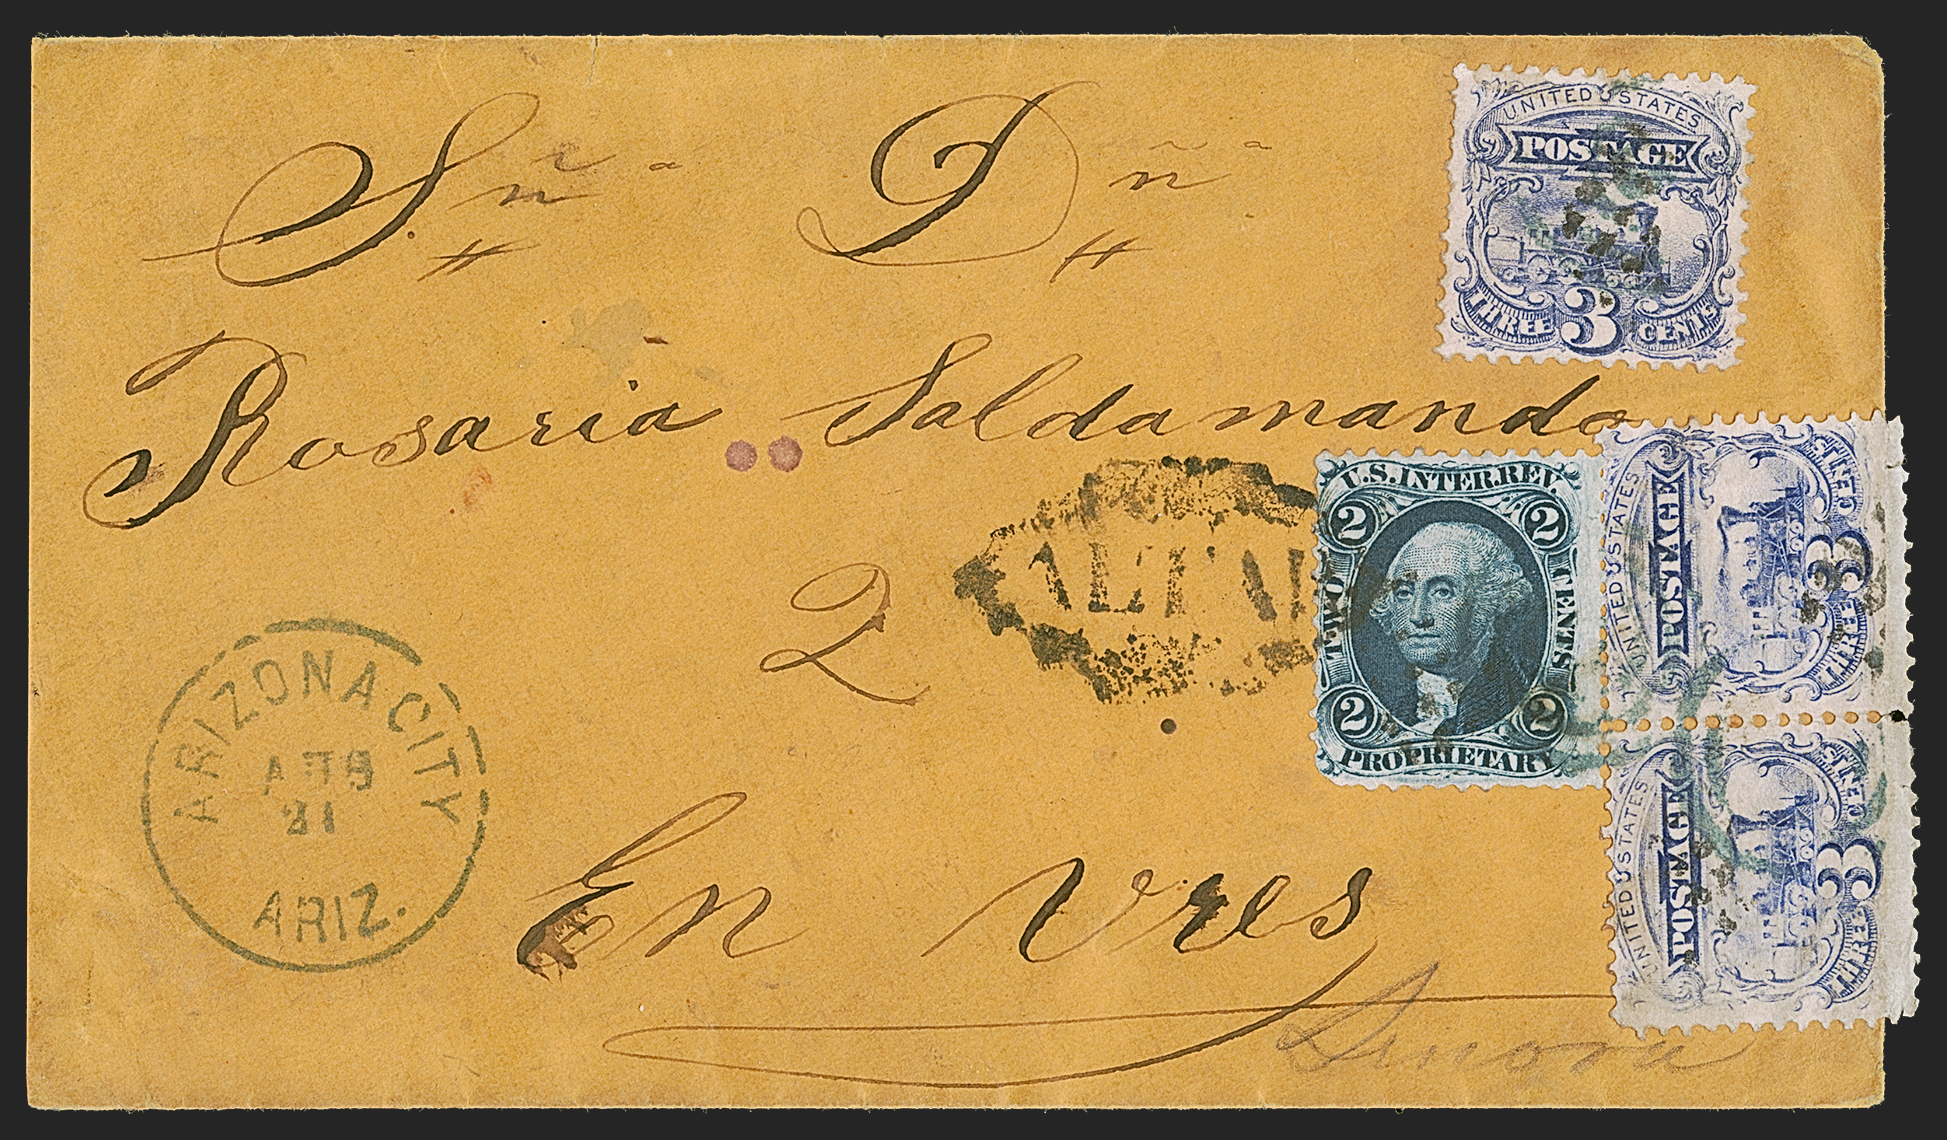 Sñª Dñª
Rosaria Saldamando
2
En Ures
Sonora
ARIZONA CITY
21
ARIZ.
UNITED STATES
POSTAGE
THREE 3 CENTS
U.S. INTER. REV.
2 2
TWO CENTS
2 2
PROPRIETARY
UNITED STATES
POSTAGE
THREE 3 CENTS
UNITED STATES
POSTAGE
THREE 3 CENTS